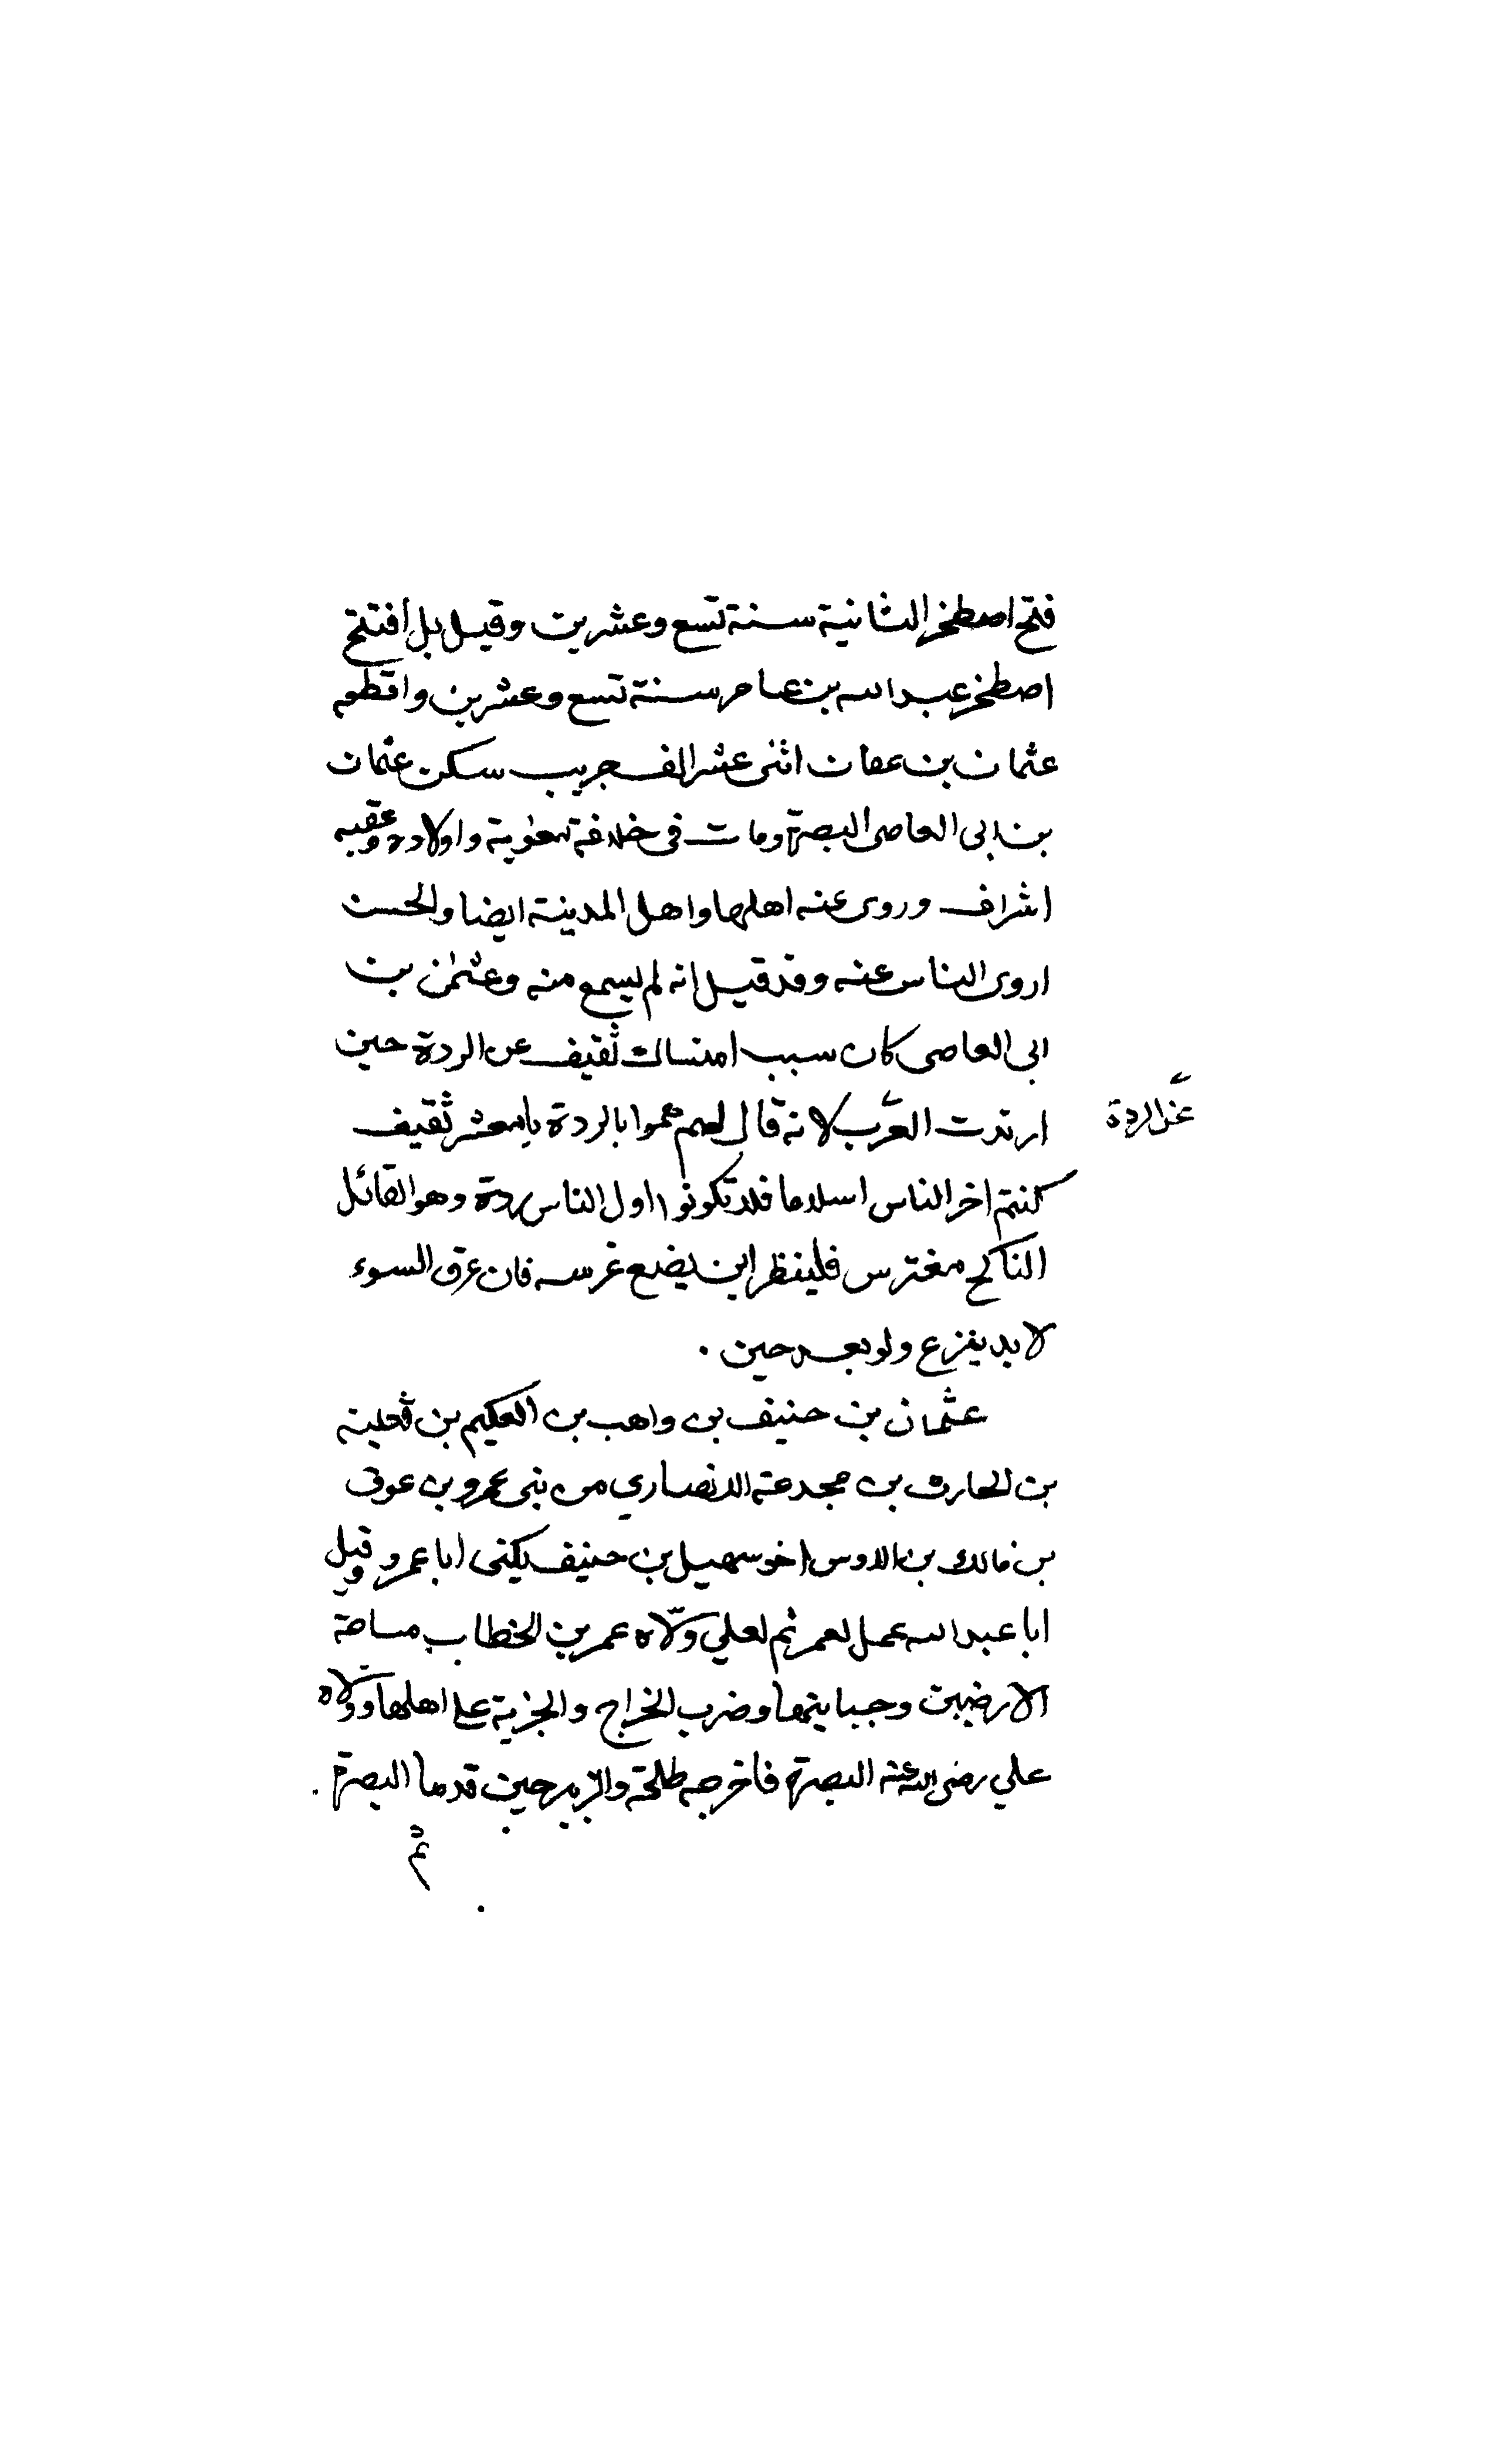 فتح اصطخر الثانية سنة تسع وعشرين وقيل بل افتتح
اصطخر عبد الله بن عامر سنة تسع وعشرين واقطعه
عثمان بن عفان اثنى عشر الف جريب سكن عثمان
بن ابى العاصى البصرة ومات فى خلافة معوية واولاده وعقبه
اشراف وروى عنه اهلها واهل المدينة ايضا والحسن
اروى الناس عنه وقد قيل انه لم يسمع منه وعثمن بن
ابى العاصى كان سبب امساك ثقيف عن الردة حين
ارتدت العرب لانه قال لهم هموا بالردة يا معشر ثقيف
عن الردة
كنتم اخر الناس اسلاما فلا تكونوا اول الناس ردة وهو القائل
الناكح مغترس فلينظر اين يضع غرسه فان عرق السوء
لا بد ينزع ولو بعد حين .
عثمان بن حنيف بن واهب بن العكيم بن ثعلبة
بن الحارث بن مجدعة الانصاري من بنى عمرو بن عوف
بن مالك بن الاوس اخو سهيل بن حنيف يكنى ابا عمرو وقيل
ابا عبد الله عمل لعمر ثم لعلي ولّاه عمر بن الخطاب مساحة
الارضين وجبايتها وضرب الخراج والجزية على اهلها وولّاه
علي رضى الله عنه البصرة فاخرجه طلحة والزبير حين قدما البصرة .
ثم